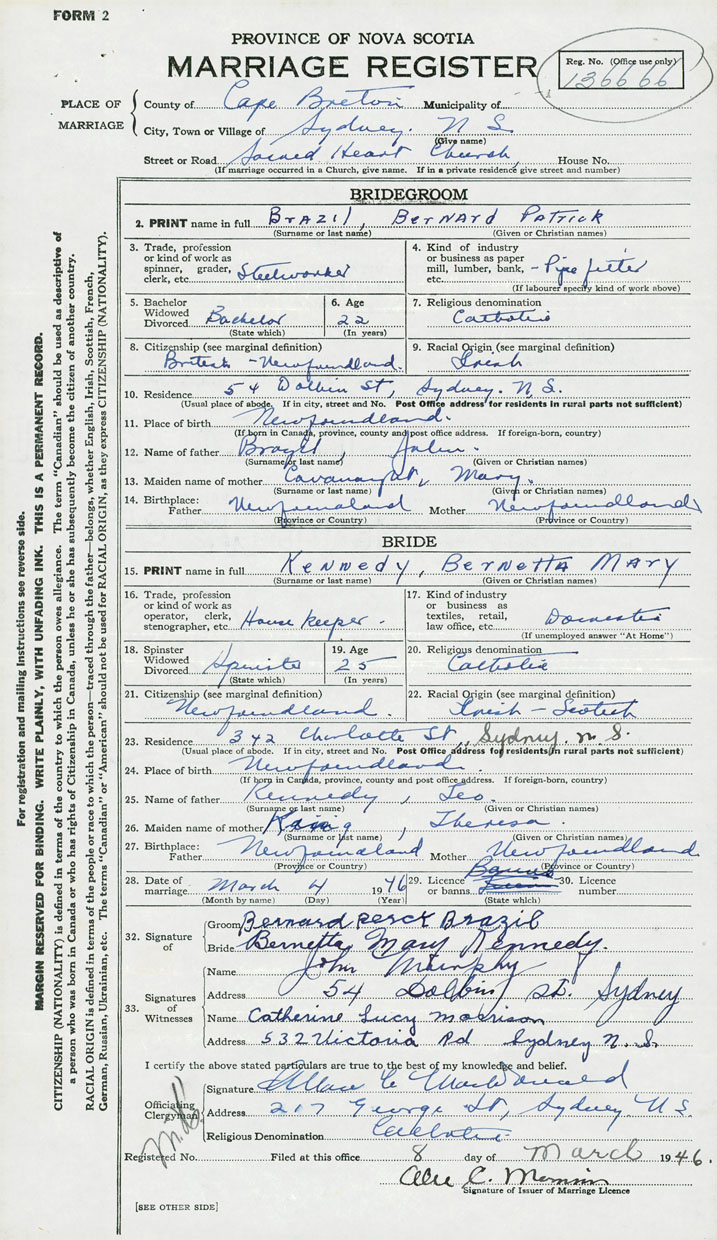 FORM 2
PROVINCE OF NOVA SCOTIA
MARRIAGE REGISTER
Reg. No. (Office use only)
136666
PLACE OF MARRIAGE
County of Cape Breton Municipality of
City, Town or Village of Sydney. N S
(Give name)
Street or Road Sacred Heart Church, House No.
(If marriage occurred in a Church, give name. If in a private residence give street and number)
BRIDEGROOM
2. PRINT name in full BRAZIL, BERNARD PATRICK
(Surname or last name) (Given or Christian names)
3. Trade, profession or kind of work as spinner, grader, clerk, etc. Steelworker
4. Kind of industry or business as paper mill, lumber, bank, etc. - Pipe fitter
(If labourer specify kind of work above)
5. Bachelor Widowed Divorced Bachelor
(State which)
6. Age 22
(In years)
7. Religious denomination
Catholic
8. Citizenship (see marginal definition)
British - Newfoundland.
9. Racial Origin (see marginal definition)
Irish
10. Residence 54 Dolbin St, Sydney. N.S.
(Usual place of abode. If in city, street and No. Post Office address for residents in rural parts not sufficient)
11. Place of birth Newfoundland.
(If born in Canada, province, county and post office address. If foreign-born, country)
12. Name of father Brazil, John.
(Surname or last name) (Given or Christian names)
13. Maiden name of mother Cavanaght, Mary.
(Surname or last name) (Given or Christian names)
14. Birthplace: Father Newfoundland Mother Newfoundland
(Province or Country) (Province or Country)
BRIDE
15. PRINT name in full KENNEDY, BERNETTA MARY
(Surname or last name) (Given or Christian names)
16. Trade, profession or kind of work as operator, clerk, stenographer, etc. House Keeper.
17. Kind of industry or business as textiles, retail, law office, etc. Domestic
(If unemployed answer "At Home")
18. Spinster Widowed Divorced Spinster
(State which)
19. Age 25
(In years)
20. Religious denomination
Catholic
21. Citizenship (see marginal definition)
Newfoundland.
22. Racial Origin (see marginal definition)
Irish - Scotch
23. Residence 342 Charlotte St., Sydney. N. S.
(Usual place of abode. If in city, street and No. Post Office address for residents in rural parts not sufficient)
24. Place of birth Newfoundland.
(If born in Canada, province, county and post office address. If foreign-born, country)
25. Name of father Kennedy, Leo.
(Surname or last name) (Given or Christian names)
26. Maiden name of mother King, Theresa.
(Surname or last name) (Given or Christian names)
27. Birthplace: Father Newfoundland Mother Newfoundland
(Province or Country) (Province or Country)
28. Date of marriage March 4 1946
(Month by name) (Day) (Year)
29. Licence or banns Banns
(State which)
30. Licence number
32. Signature of
Groom Bernard Perck Brazil
Bride Bernetta Mary Kennedy.
33. Signatures of Witnesses
Name John Murphy
Address 54 Dolbin St. Sydney
Name Catherine Lucy Morrison
Address 532 Victoria Rd Sydney N. S.
I certify the above stated particulars are true to the best of my knowledge and belief.
Officiating Clergyman
Signature C MacDonald
Address 217 George St, Sydney N S.
Religious Denomination Catholic
Registered No. Filed at this office 8 day of March 1946.
C. 
Signature of Issuer of Marriage Licence
[SEE OTHER SIDE]
For registration and mailing instructions see reverse side.
MARGIN RESERVED FOR BINDING. WRITE PLAINLY, WITH UNFADING INK. THIS IS A PERMANENT RECORD.
CITIZENSHIP (NATIONALITY) is defined in terms of the country to which the person owes allegiance. The term "Canadian" should be used as descriptive of
a person who was born in Canada or who has rights of Citizenship in Canada, unless he or she has subsequently become the citizen of another country.
RACIAL ORIGIN is defined in terms of the people or race to which the person—traced through the father—belongs, whether English, Irish, Scottish, French,
German, Russian, Ukrainian, etc. The terms "Canadian" or "American" should not be used for RACIAL ORIGIN, as they express CITIZENSHIP (NATIONALITY).